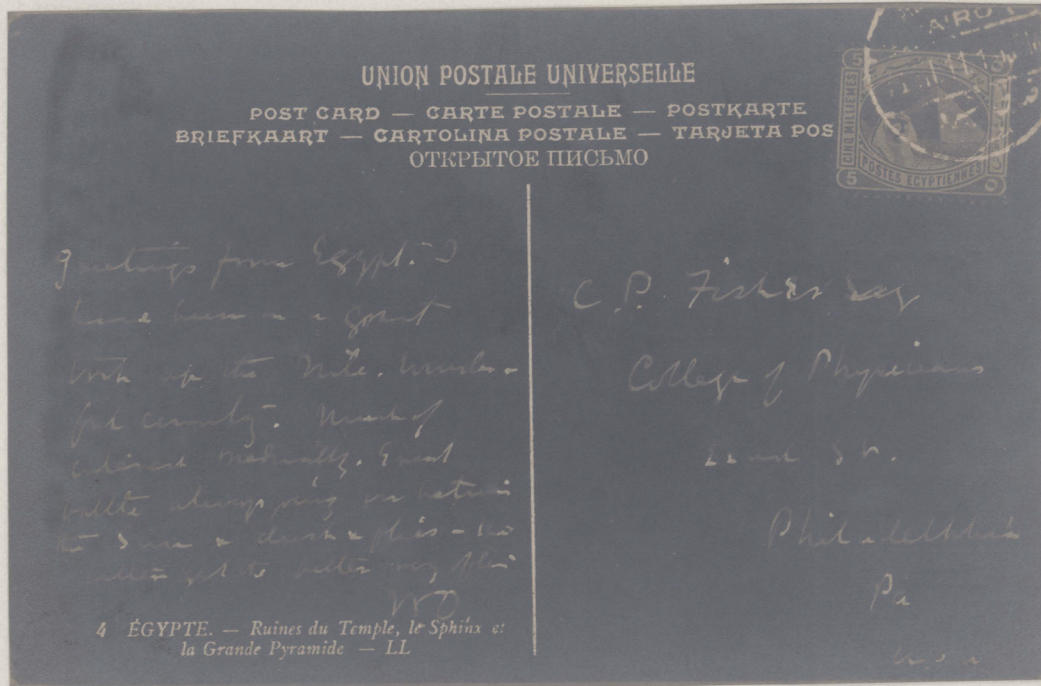 UNION POSTALE UNIVERSELLE
POST CARD — CARTE POSTALE — POSTKARTE
BRIEFKAART — CARTOLINA POSTALE — TARJETA POS
ОТКРЫТОЕ ПИСЬМО
5 5
CINQ MILLIEMES
POSTES EGYPTIENNES
5
Greetings from Egypt. I
have been on a great
trip up the Nile. Wonder-
ful country. Much of
interest medically. Great
battle always going on between
the Sun & &
the better
WO
C. P. Fisher Esq
College of Physicians
22nd St.
Philadelphia
Pa
U.S.A
4 ÉGYPTE. — Ruines du Temple, le Sphinx et
la Grande Pyramide — LL